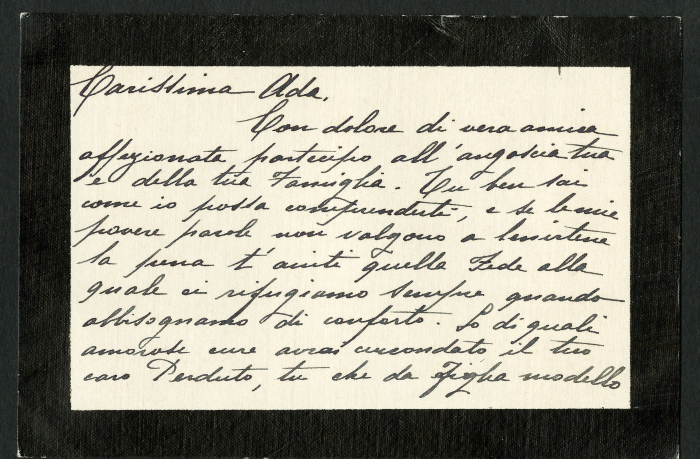 Carissima Ada,
Con dolore di vera amica
affezionata partecipo all'angoscia tua
e della tua Famiglia. Tu ben sai
come io possa comprenderti, e se le mie
povere parole non valgono a lenirtene
la pena t'aiuti quella Fede alla
quale ci rifugiamo sempre quando
abbisognamo di conforto. So di quali
amorose cure avrai circondato il tuo
caro Perduto, tu che da Figlia modello